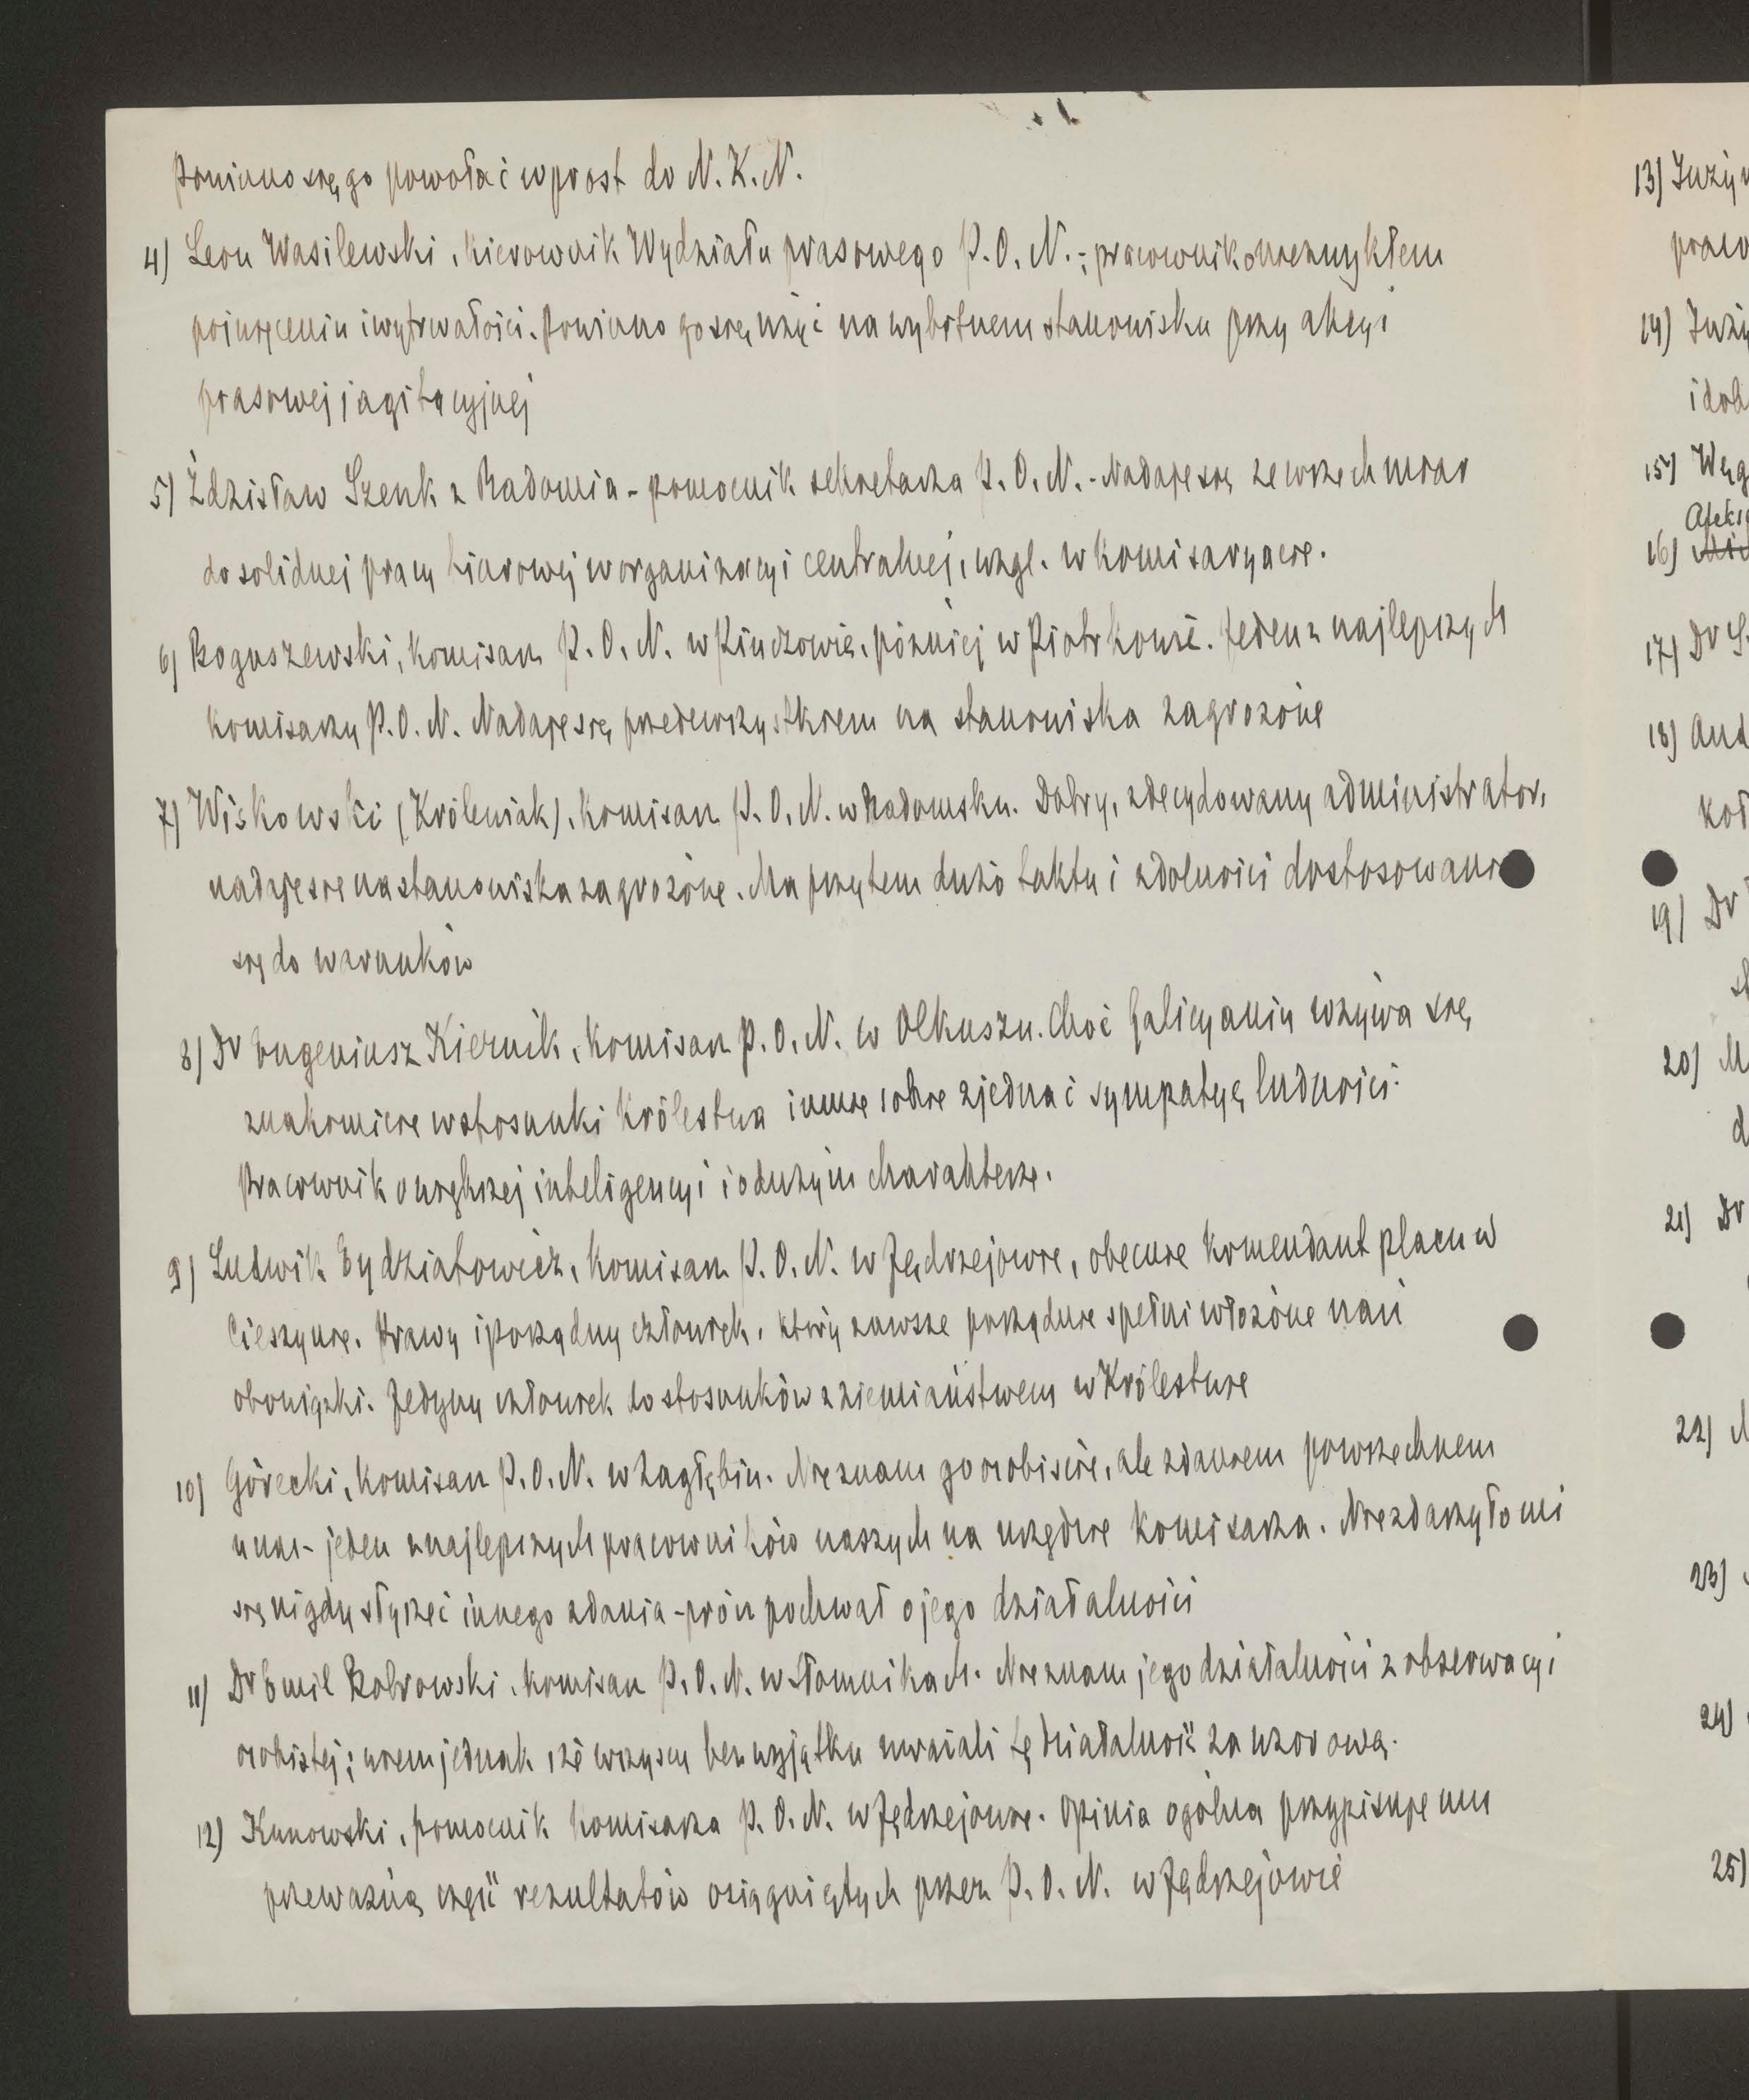 Powinno się go powołać wprost do N.K.N.
4) Leon Wasilewski, kierownik Wydziału prasowego P.O.N.; pracownik o niezwykłem
poświęceniu i wytrwałości. Powinno go się użyć na wybitnem stanowisku przy akcyi
prasowej i agitacyjnej
5) Zdzisław Szenk z Radomia - pomocnik sekretarza P.O.N. - Nadaje się ze wszech miar
do solidnej pracy biurowej w organizacyi centralnej, wzgl. w komisaryacie.
6) Boguszewski, komisarz P.O.N. w Pińczowie, później w Piotrkowie. Jeden z najlepszych
komisarzy P.O.N. Nadaje się przedewszystkiem na stanowiska zagrożone
7) Wiskowski (Królewiak), komisarz P.O.N. w Radomsku. Dobry, zdecydowany administrator,
nadaje sie na stanowiska zagrożone. Ma przytem dużo taktu i zdolności dostosowania
się do warunków
8) Dr Eugeniusz Kiernik, komisarz P.O.N. w Olkuszu. Choć Galicyanin wżywa się
znakomicie w stosunki Królestwa i umie sobie zjednać sympatyę ludności.
Pracownik o większej inteligencyi i o dużym charakterze.
9) Ludwik Eydziatowicz, komisarz P.O.N. w Jędrzejowie, obecnie komendant placu w
Cieszynie. Prawy i porządny człowiek, który zawsze porządnie spełni włożone nań
obowiązki. Jedyny człowiek do stosunków z ziemiaństwem w Królestwie
10) Górecki, komisarz P.O.N. w Zagłębiu. Nie znam go osobiście, ale zdaniem powszechnem
u nas - jeden z najlepszych pracowników naszych na urzędzie komisarza. Nie zdarzyło mi
się nigdy słyszeć innego zdania - prócz pochwał o jego działalności
11) Dr Emil Bobrowski, komisarz P.O.N. w Słomnikach. Nie znam jego działalności z obserwacyi
osobistej; wiem jednak, że wszyscy bez wyjątku uważali tę działalność za wzorową.
12) Kunowski, pomocnik komisarza P.O.N. w Jędrzejowie. Opinia ogólna przypisuje mu
przeważną część rezultatów osiągniętych przez P.O.N. w Jędrzejowie
13) Inży
14) Inży
i dob
15) Węg
16)
17) Dr S
18) And
19) Dr
20) M
21) Dr
22)
23)
24)
25)